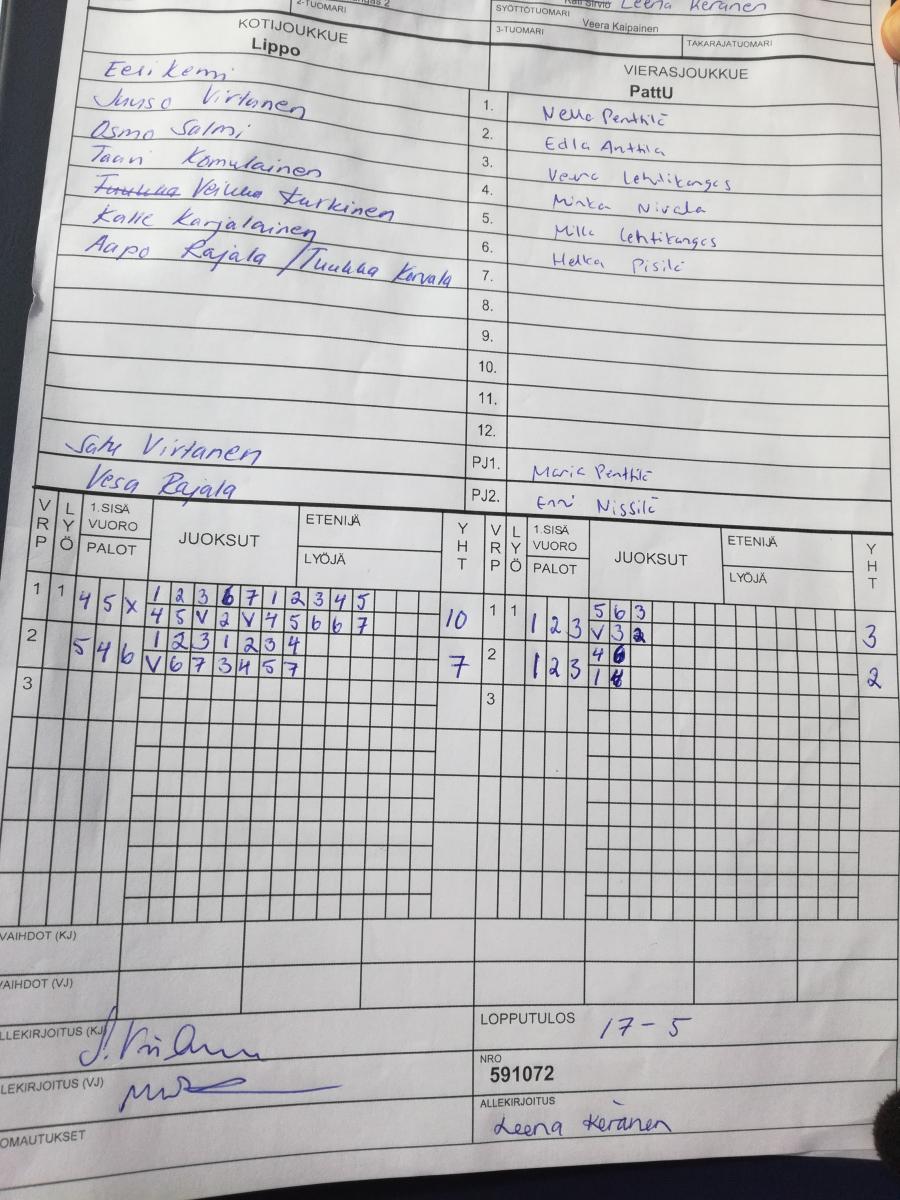 2-TUOMARI
SYÖTTÖTUOMARI Leena Keränen
3-TUOMARI Veera Kaipainen
TAKARAJATUOMARI
KOTIJOUKKUE
Lippo
VIERASJOUKKUE
PattU
Eeri Kemi
Juuso Virtanen 1. Nella Penttilä
Osmo Salmi 2. Edla Anttila
Taavi Komulainen 3. Veera Lehtikangas
Veikka Kurkinen 4. Minka Nivala
Kalle Karjalainen 5. Milla Lehtikangas
Aapo Rajala / Tuukka Korvala 6. Helka Pisilä
7.
8.
9.
10.
11.
12.
Satu Virtanen PJ1. Maria Penttilä
Vesa Rajala PJ2. Enni Nissilä
VRP LYÖ 1.SISÄ VUORO PALOT JUOKSUT ETENIJÄ LYÖJÄ YHT VRP LYÖ 1.SISÄ VUORO PALOT JUOKSUT ETENIJÄ LYÖJÄ YHT
1 1 4 5 X 1 2 3 6 7 1 2 3 4 5 10 1 1 1 2 3 5 6 3 3
4 5 V 2 V 4 5 6 6 7 V 3 2
2 5 4 6 1 2 3 1 2 3 4 7 2 1 2 3 4 6 2
V 6 7 3 4 5 7 1
3 3
VAIHDOT (KJ)
VAIHDOT (VJ)
LLEKIRJOITUS (KJ)
LOPPUTULOS 17-5
LEKIRJOITUS (VJ)
NRO
591072
OMAUTUKSET
ALLEKIRJOITUS
Leena Keränen